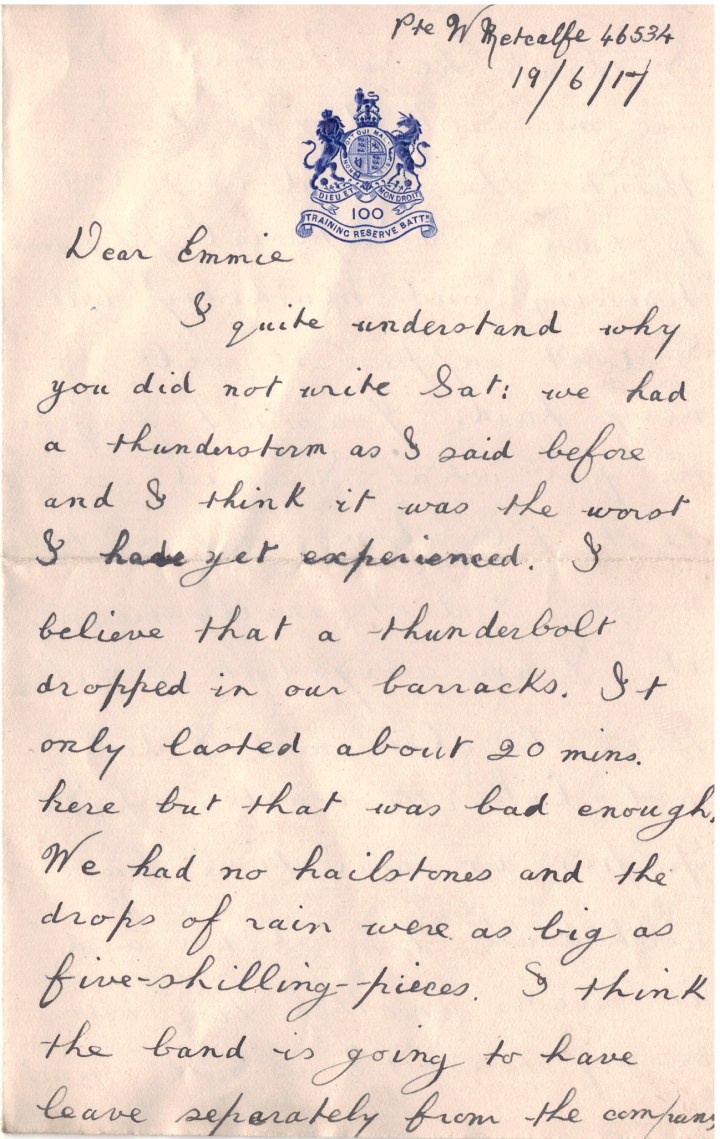 Pte W Metcalfe 46534
19/6/17
HONI SOIT QUI MAL Y PENSE
DIEU ET MON DROIT
100
TRAINING RESERVE BATTN
Dear Emmie
I quite understand why
you did not write Sat: we had
a thunderstorm as I said before
and I think it was the worst
I have yet experienced. I
believe that a thunderbolt
dropped in our barracks. It
only lasted about 20 mins.
here but that was bad enough.
We had no hailstones and the
drops of rain were as big as
five-shilling-pieces. I think
the band is going to have
leave seperately from the company